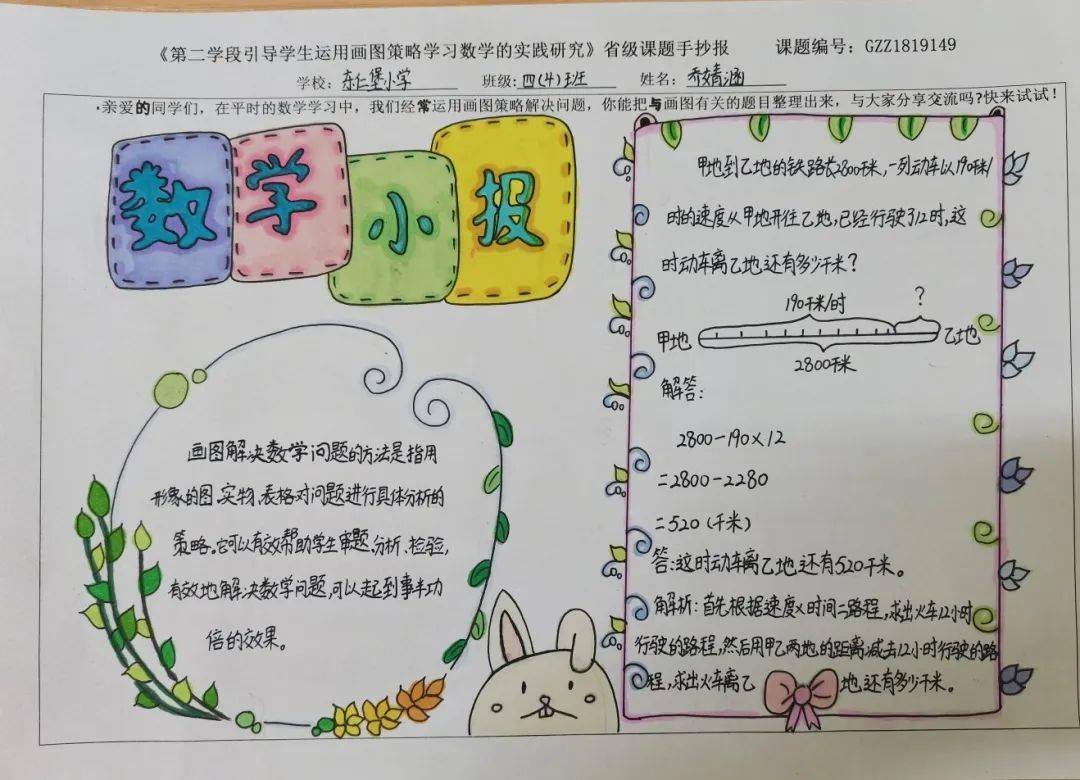 《第二学段引导学生运用画图策略学习数学的实践研究》省级课题手抄报 课题编号：GZZ1819149
学校：东仁堡小学 班级：四(4)班 姓名：乔婧涵
·亲爱的同学们，在平时的数学学习中，我们经常运用画图策略解决问题，你能把与画图有关的题目整理出来，与大家分享交流吗?快来试试!
数学小报
画图解决数学问题的方法是指用
形象的图、实物、表格对问题进行具体分析的
策略。它可以有效帮助学生审题、分析、检验，
有效地解决数学问题，可以起到事半功
倍的效果。
甲地到乙地的铁路长2800千米，一列动车以190千米/
时的速度从甲地开往乙地，已经行驶了12时，这
时动车离乙地还有多少千米？
190千米/时 ？
甲地 乙地
2800千米
解答：
2800-190×12
=2800-2280
=520（千米）
答：这时动车离乙地还有520千米。
解析：首先根据速度×时间=路程，求出火车12小时
行驶的路程，然后用甲乙两地的距离减去12小时行驶的路
程，求出火车离乙地还有多少千米。